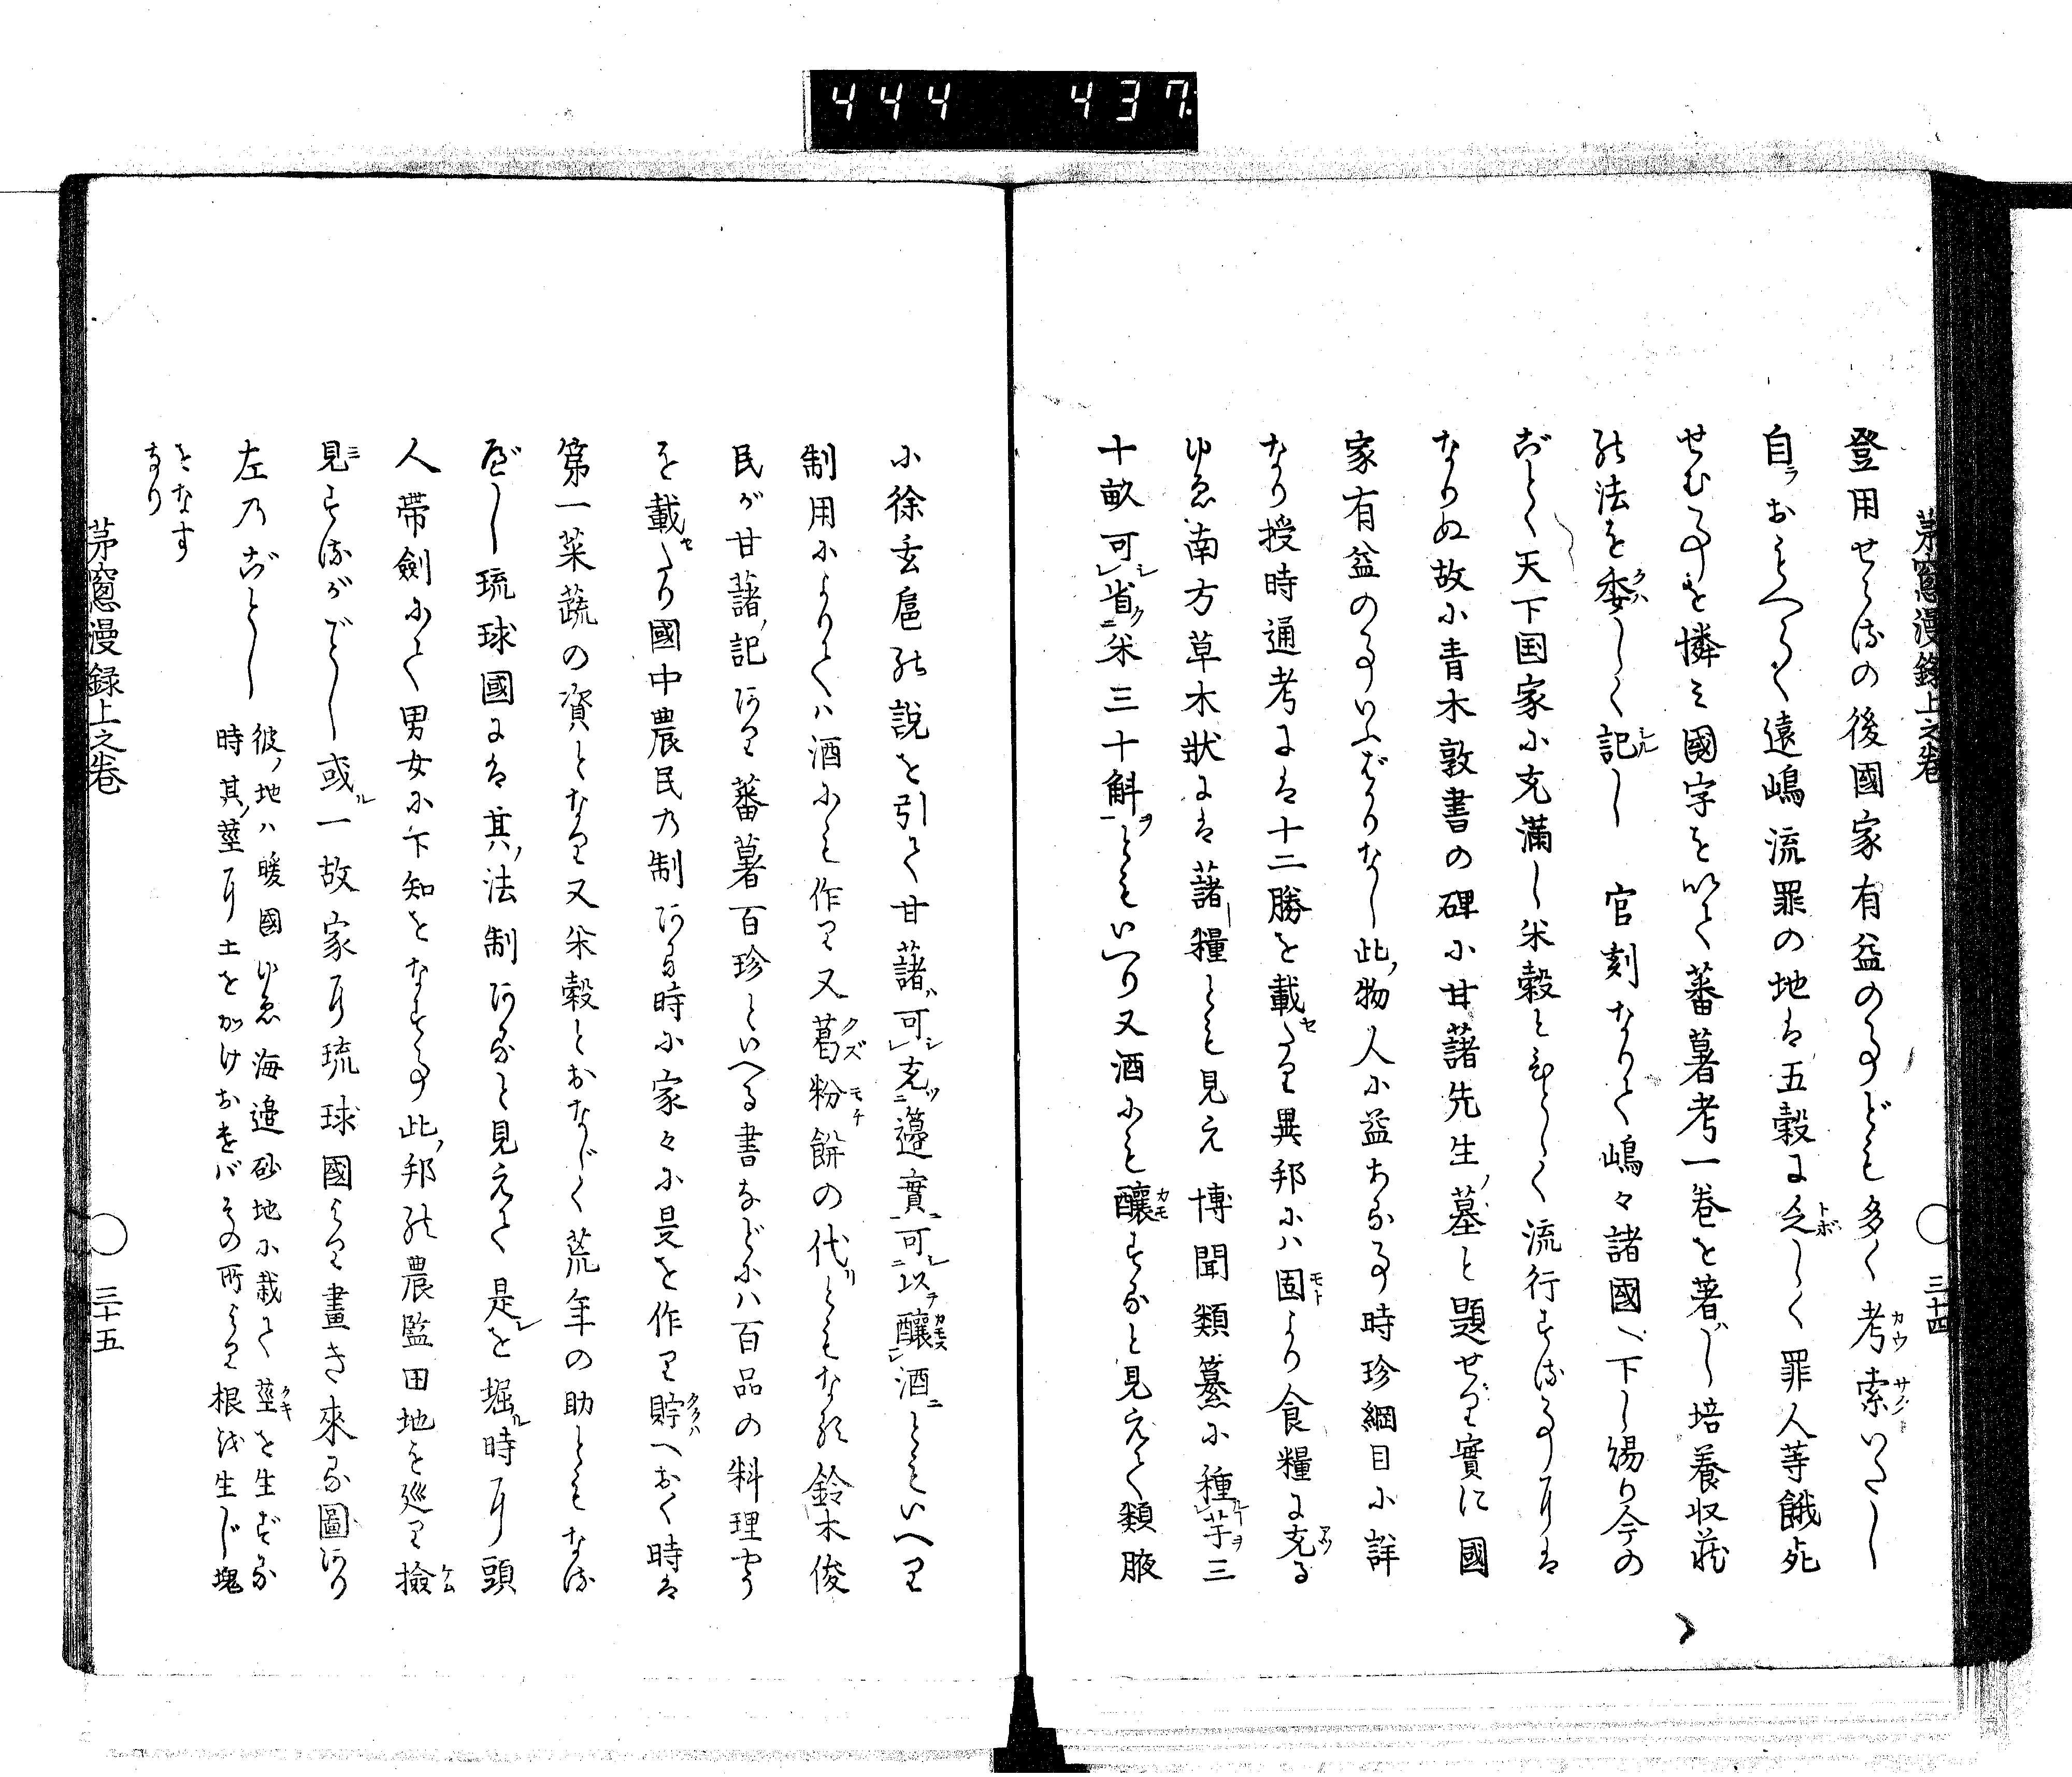 444 437
茅窓漫錄上之卷 三十四
登用せらるの後國家有益の事ども多く考索いたし
自おもへらく遠嶋流罪の地は五穀に乏しく罪人等餓死
せむ事を憐み國字を以て蕃薯考一卷を著し培養収蔵
の法を委しく記し 官刻なりて嶋々諸國へ下し賜り今の
ごとく天下国家に充滿し米穀とひとしく流行する事には
なりぬ故に青木敦書の碑に甘藷先生ノ墓と題せり實に國
家有益の事いふばかりなし此ノ物人に益ある事時珍綱目に詳
なり授時通考には十二勝を載たり異邦には固より食糧に充る
ゆゑ南方草木狀には藷糧とも見え博聞類纂に種芋三
十畝可省米三十斛ともいへり又酒にも釀すると見えて類腋
に徐玄扈の說を引て甘藷可充籩實可以釀酒ともいへり
制用によりては酒にも作り又葛粉餅の代りともなる鈴木俊
民が甘藷ノ記あり蕃薯百珍といへる書などには百品の料理やう
を載たり國中農民の制ある時に家々に是を作り貯へおく時は
第一菜蔬の資となり又米穀とおなじく荒年の助ともなる
べし琉球國には其ノ法制あると見えて是を堀ル時に頭
人帶劍にて男女に下知をなする事此ノ邦の農監田地を巡り撿
見するがごとし或ル一故家に琉球國より畫き來る圖あり
左のごとし 彼ノ地は暖國ゆゑ海邉砂地に栽て莖を生ずる
時其ノ莖に土をかけおけバその所より根を生じ塊
をなす
なり
茅窓漫錄上之卷 三十五